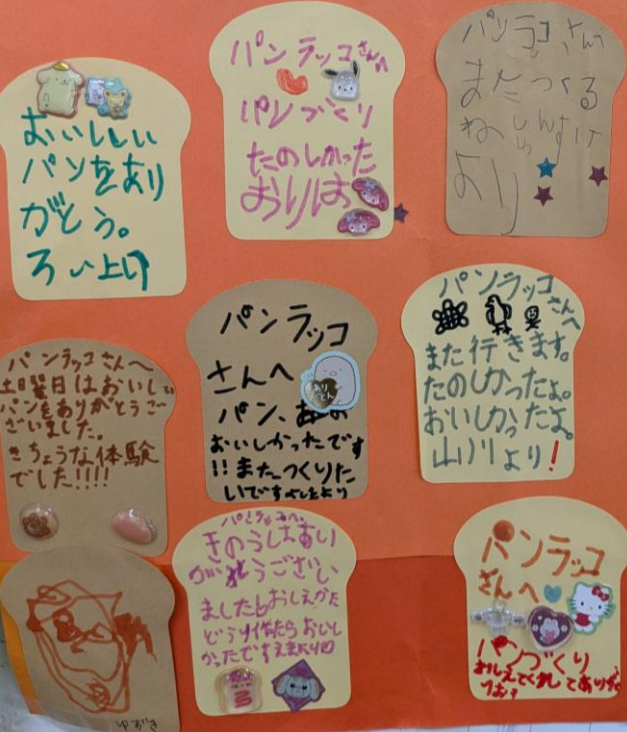 おいしい
パンをあり
がとう。
パンラッコさんへ
パンづくり
たのしかった
おりは
パンラッコさんへ
またつくる
ね
より
パンラッコさんへ
土曜日はおいしい
パンをありがとうご
ざいました。
きちょうな体験
でした!!!!
パンラッコ
さんへ
パン、
おいしかったです
!!またつくりた
いです より
パンラッコさんへ
また行きます。
たのしかったよ。
おいしかったよ。
山川より!
ゆずき
きのうしはあい
がとうござい
ました おしえかた
どうり作たらおいし
かったです
パンラッコ
さんへ
パンづくり
おしえてくれてありがと